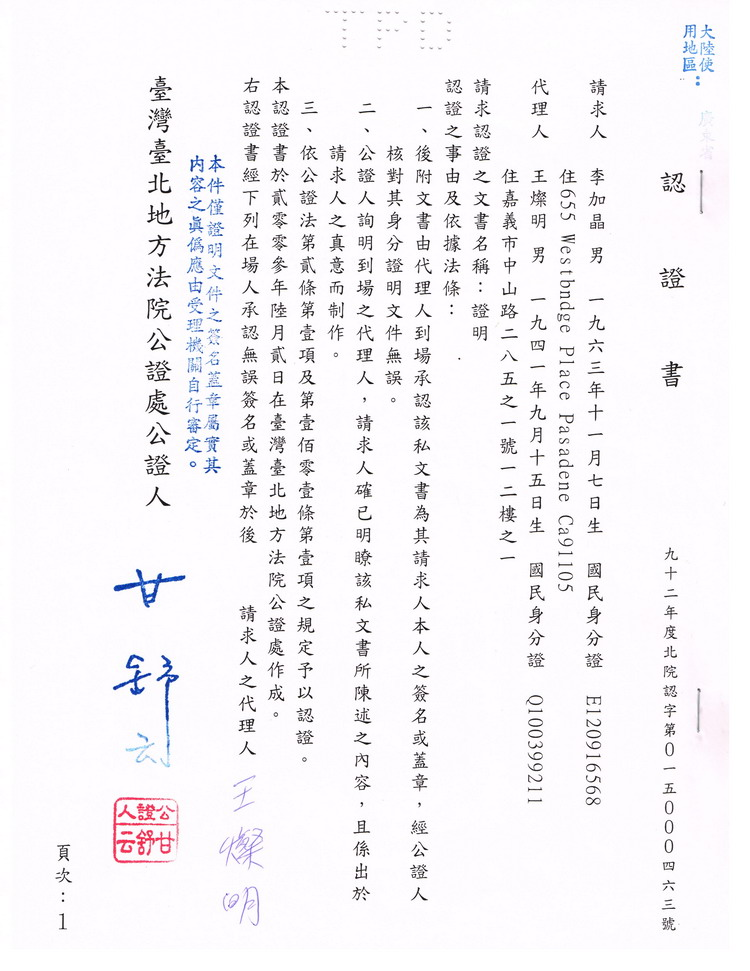 大陸使
用地區：
廣東省
TPD
認證書
九十二年度北院認字第0一五000四六三號
請求人　李加晶　男　一九六三年十一月七日生　國民身分證　E120916568
住655 Westbndge Place Pasadene Ca91105
代理人　王燦明　男　一九四一年九月十五日生　國民身分證　Q100399211
住嘉義市中山路二八五之一號一二樓之一
請求認證之文書名稱：證明
認證之事由及依據法條：
一、後附文書由代理人到場承認該私文書為其請求人本人之簽名或蓋章，經公證人
核對其身分證明文件無誤。
二、公證人詢明到場之代理人，請求人確已明瞭該私文書所陳述之內容，且係出於
請求人之真意而制作。
三、依公證法第貳條第壹項及第壹佰零壹條第壹項之規定予以認證。
本認證書於貳零零參年陸月貳日在臺灣臺北地方法院公證處作成。
右認證書經下列在場人承認無誤簽名或蓋章於後
請求人之代理人　王燦明
本件僅證明文件之簽名蓋章屬實其
內容之真偽應由受理機關自行審定。
臺灣臺北地方法院公證處公證人
甘舒云
公證人
甘舒云
頁次：1